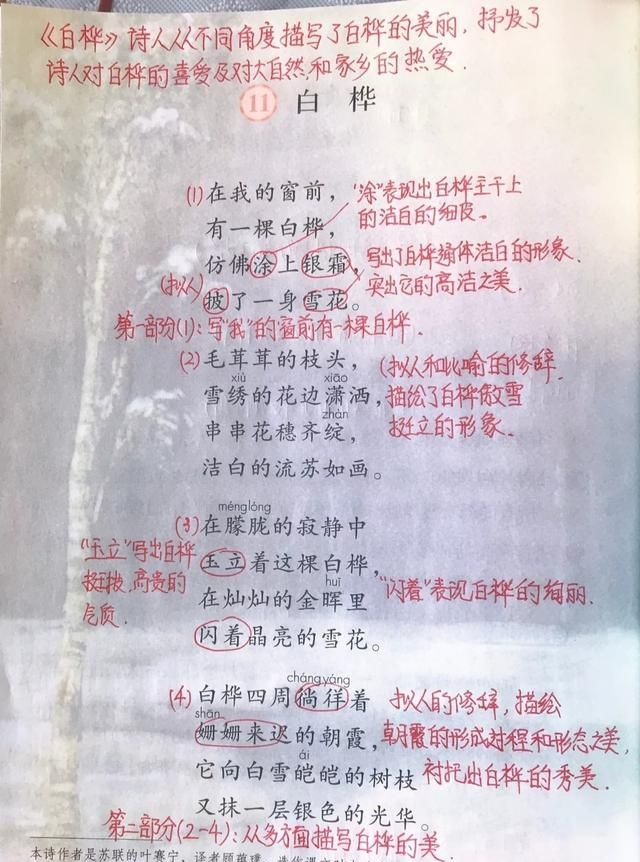 《白桦》诗人从不同角度描写了白桦的美丽，抒发了
诗人对白桦的喜爱及对大自然和家乡的热爱.
11 白桦
(1) 在我的窗前，
"涂"表现出白桦主干上
的洁白的细皮。
有一棵白桦，
仿佛涂上银霜，
写出了白桦通体洁白的形象.
突出它的高洁之美.
(拟人)
披了一身雪花。
第一部分(1):写"我"的窗前有一棵白桦.
(2) 毛茸茸的枝头，
(拟人和比喻的修辞.
描绘了白桦傲雪
挺立的形象.
xiù xiāo
雪绣的花边潇洒，
zhàn
串串花穗齐绽，
洁白的流苏如画。
ménglóng
(3) 在朦胧的寂静中
"玉立"写出白桦
挺拔，高贵的
气质.
玉立着这棵白桦，
huī
在灿灿的金晖里
"闪着"表现白桦的绚丽.
闪着晶亮的雪花。
cháng yáng
(4) 白桦四周徜徉着
拟人的修辞，描绘
朝霞的形成过程和形态之美，
衬托出白桦的秀美.
shān
姗姗来迟的朝霞，
ái
它向白雪皑皑的树枝
又抹一层银色的光华。
第二部分(2-4):从多方面描写白桦的美
本诗作者是苏联的叶赛宁，译者顾蕴璞